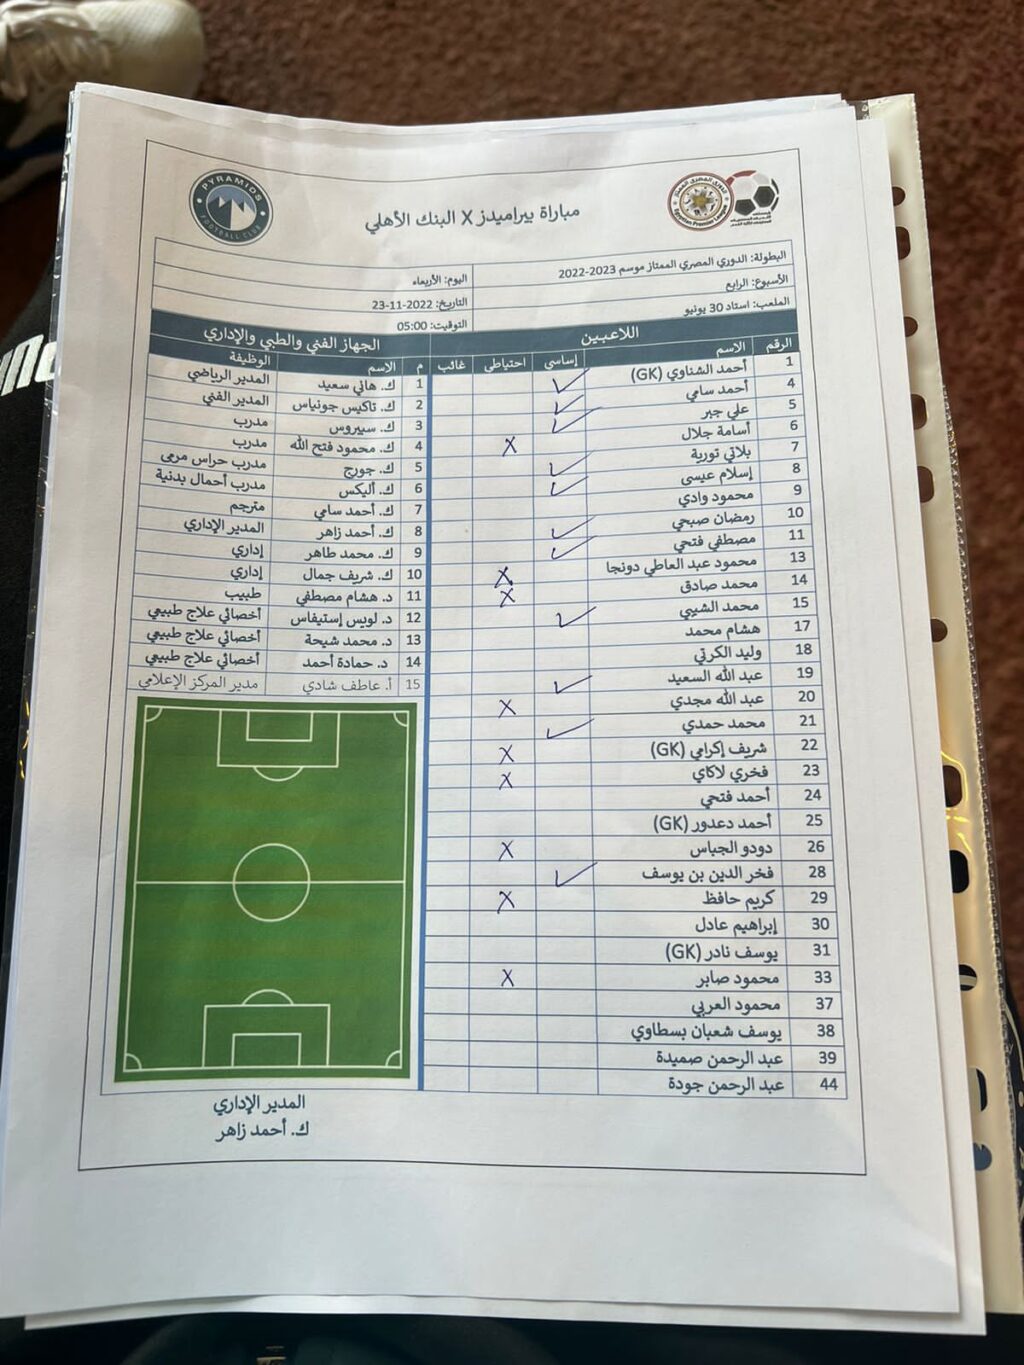 PYRAMIDS
FOOTBALL CLUB
مباراة بيراميدز X البنك الأهلي
الدوري المصري الممتاز
Egyptian Premier League
البطولة: الدوري المصري الممتاز موسم 2023-2022
اليوم: الأربعاء
الأسبوع: الرابع
التاريخ: 2022-11-23
الملعب: استاد 30 يونيو
التوقيت: 05:00
اللاعبين
الرقم الاسم إساسي احتياطى غائب
1 أحمد الشناوي (GK) ✓
4 أحمد سامي ✓
5 علي جبر ✓
6 أسامة جلال X
7 بلاتي تورية ✓
8 إسلام عيسى ✓
9 محمود وادي
10 رمضان صبحي ✓
11 مصطفي فتحي ✓
13 محمود عبد العاطي دونجا X
14 محمد صادق X
15 محمد الشيبي ✓
17 هشام محمد
18 وليد الكرتي
19 عبد الله السعيد ✓
20 عبد الله مجدي X
21 محمد حمدي ✓
22 شريف إكرامي (GK) X
23 فخري لاكاي X
24 أحمد فتحي
25 أحمد دعدور (GK)
26 دودو الجباس X
28 فخر الدين بن يوسف ✓
29 كريم حافظ X
30 إبراهيم عادل
31 يوسف نادر (GK)
33 محمود صابر X
37 محمود العربي
38 يوسف شعبان بسطاوي
39 عبد الرحمن صميدة
44 عبد الرحمن جودة
الجهاز الفني والطبي والإداري
م الاسم الوظيفة
1 ك. هاني سعيد المدير الرياضي
2 ك. تاكيس جونياس المدير الفني
3 ك. سبيروس مدرب
4 ك. محمود فتح الله مدرب
5 ك. جورج مدرب حراس مرمى
6 ك. أليكس مدرب أحمال بدنية
7 ك. أحمد سامي مترجم
8 ك. أحمد زاهر المدير الإداري
9 ك. محمد طاهر إداري
10 ك. شريف جمال إداري
11 د. هشام مصطفي طبيب
12 د. لويس إستيفاس أخصائي علاج طبيعي
13 د. محمد شيحة أخصائي علاج طبيعي
14 د. حمادة أحمد أخصائي علاج طبيعي
15 أ. عاطف شادي مدير المركز الإعلامي
المدير الإداري
ك. أحمد زاهر